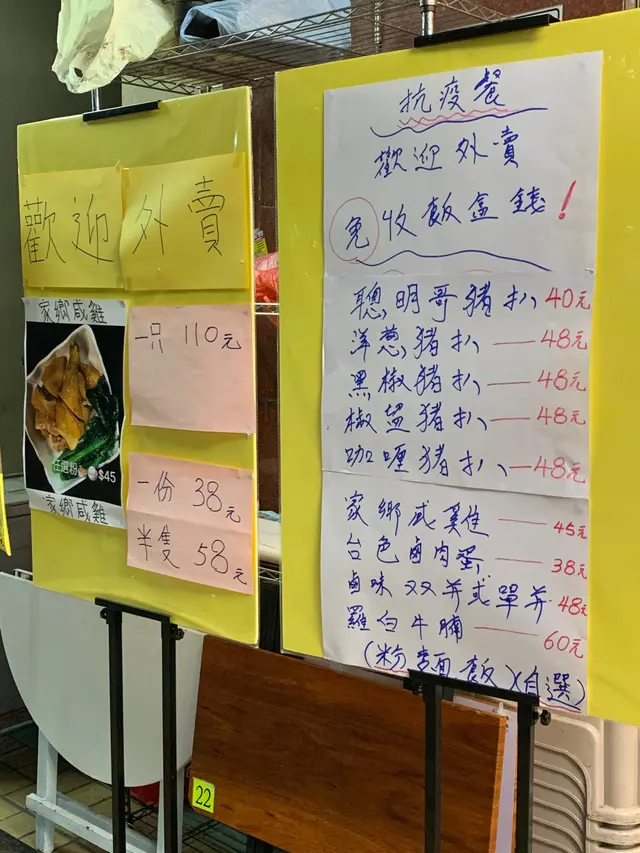 歡迎外賣
家鄉咸雞
任選粉 $45
家鄉咸雞
一只 110元
一份 38元
半隻 58元
抗疫餐
歡迎外賣
免收飯盒錢！
聰明哥豬扒 40元
洋葱豬扒 — 48元
黑椒豬扒 — 48元
椒鹽豬扒 — 48元
咖喱豬扒 — 48元
家鄉咸雞 — 45元
台色鹵肉蛋 — 38元
鹵味双并或單并 48元
羅白牛腩 — 60元
(粉麵飯)(自選)
22